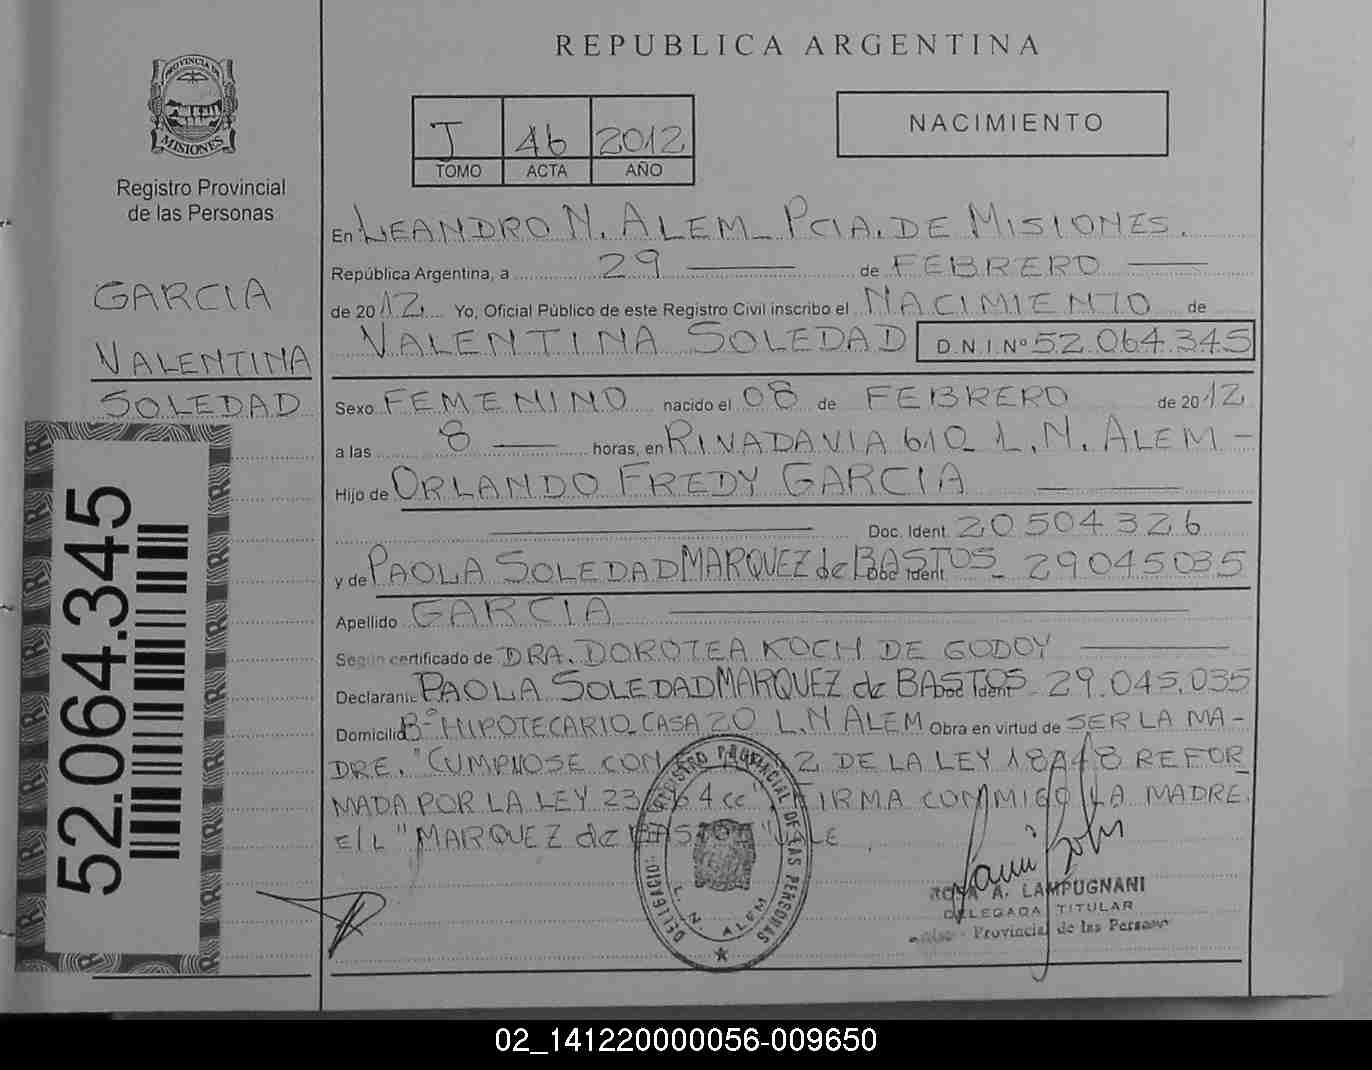 REPUBLICA ARGENTINA
PROVINCIA DE
MISIONES
Registro Provincial
de las Personas
J 46 2012
TOMO ACTA AÑO
NACIMIENTO
GARCIA
VALENTINA
SOLEDAD
52.064.345
En LEANDRO N. ALEM_ PCIA. DE MISIONES.
República Argentina, a 29 de FEBRERO
de 2012 Yo, Oficial Público de este Registro Civil inscribo el NACIMIENTO de
VALENTINA SOLEDAD D.N.I.Nº 52.064.345
Sexo FEMENINO nacido el 08 de FEBRERO de 2012
a las 8 horas, en RIVADAVIA 610_ L.N. ALEM -
Hijo de ORLANDO FREDY GARCIA
Doc. Ident. 20504326
y de PAOLA SOLEDAD MARQUEZ de BASTOS Doc Ident. - 29045035
Apellido GARCIA
Según certificado de DRA. DOROTEA KOCH DE GODOY
Declarante PAOLA SOLEDAD MARQUEZ de BASTOS Doc Ident - 29.045.035
Domicilio Bº HIPOTECARIO_CASA 20 L.N ALEM Obra en virtud de SER LA MA-
DRE. "CUMPLIOSE CON 2 DE LA LEY REFOR_
MADA POR LA LEY FIRMA CONMIGO LA MADRE.
E/L "MARQUEZ de BASTOS" VALE
REGISTRO PROVINCIAL DE LAS PERSONAS
L. N. ALEM
A. LAMPUGNANI
DELEGADA TITULAR
Provincial de las Personas
02_141220000056-009650